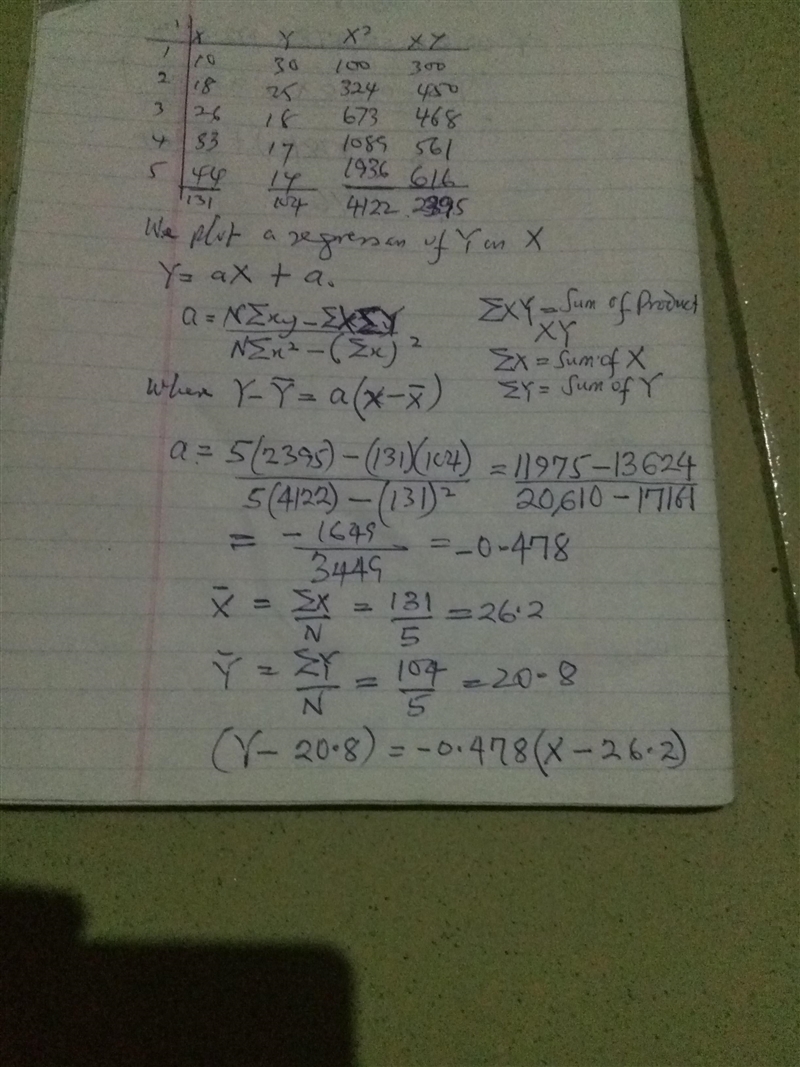 X Y X² XY
1 10 30 100 300
2 18 25 324 450
3 26 18 673 468
4 33 17 1089 561
5 44 14 1936 616
131 104 4122 2395
We plot a regression of Y on X
Y = aX + a.
a = NΣxy - ΣXΣY / NΣx² - (Σx)²
ΣXY = Sum of Product XY
ΣX = Sum of X
ΣY = Sum of Y
When Y - Ȳ = a(x - x̄)
a = 5(2395) - (131)(104) / 5(4122) - (131)² = 11975 - 13624 / 20,610 - 17161
= -1649 / 3449 = -0.478
X̄ = ΣX / N = 131 / 5 = 26.2
Ȳ = ΣY / N = 104 / 5 = 20.8
(Y - 20.8) = -0.478(X - 26.2)